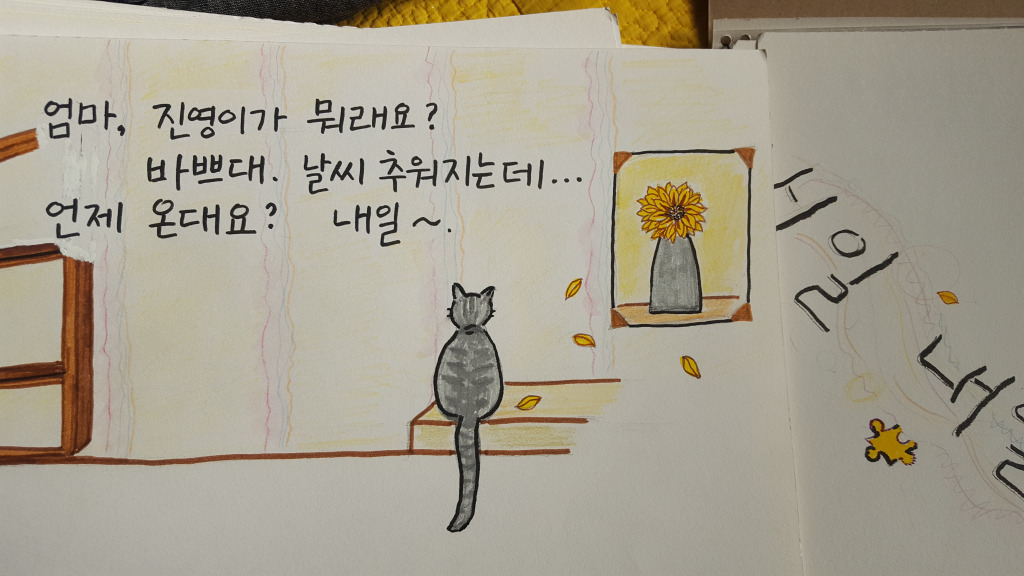 엄마, 진영이가 뭐래요?
바쁘대. 날씨 추워지는데...
언제 온대요? 내일~.
내일